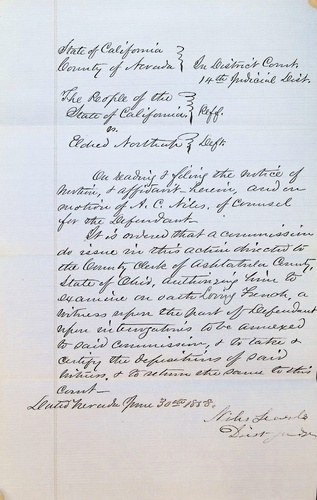 State of California
County of Nevada } In District Court
14th Judicial Dist.
The People of the
State of California } Plff.
vs.
Eldred Northup } Deft.
On reading & filing the notice of
motion, & affidavit herein, and on
motion of A. C. Niles, of Counsel
for the Defendant
It is ordered that a commission
do issue in this action directed to
the County Clerk of Ashtabula County,
State of Ohio, authorizing him to
examine on oath Loring French, a
witness upon the part of Defendant
upon interrogatories to be annexed
to said commission, & to take &
certify the depositions of said
witness. & to return the same to this
Court—
Dated Nevada June 30th 1858.
Niles Searls
Dist Judge